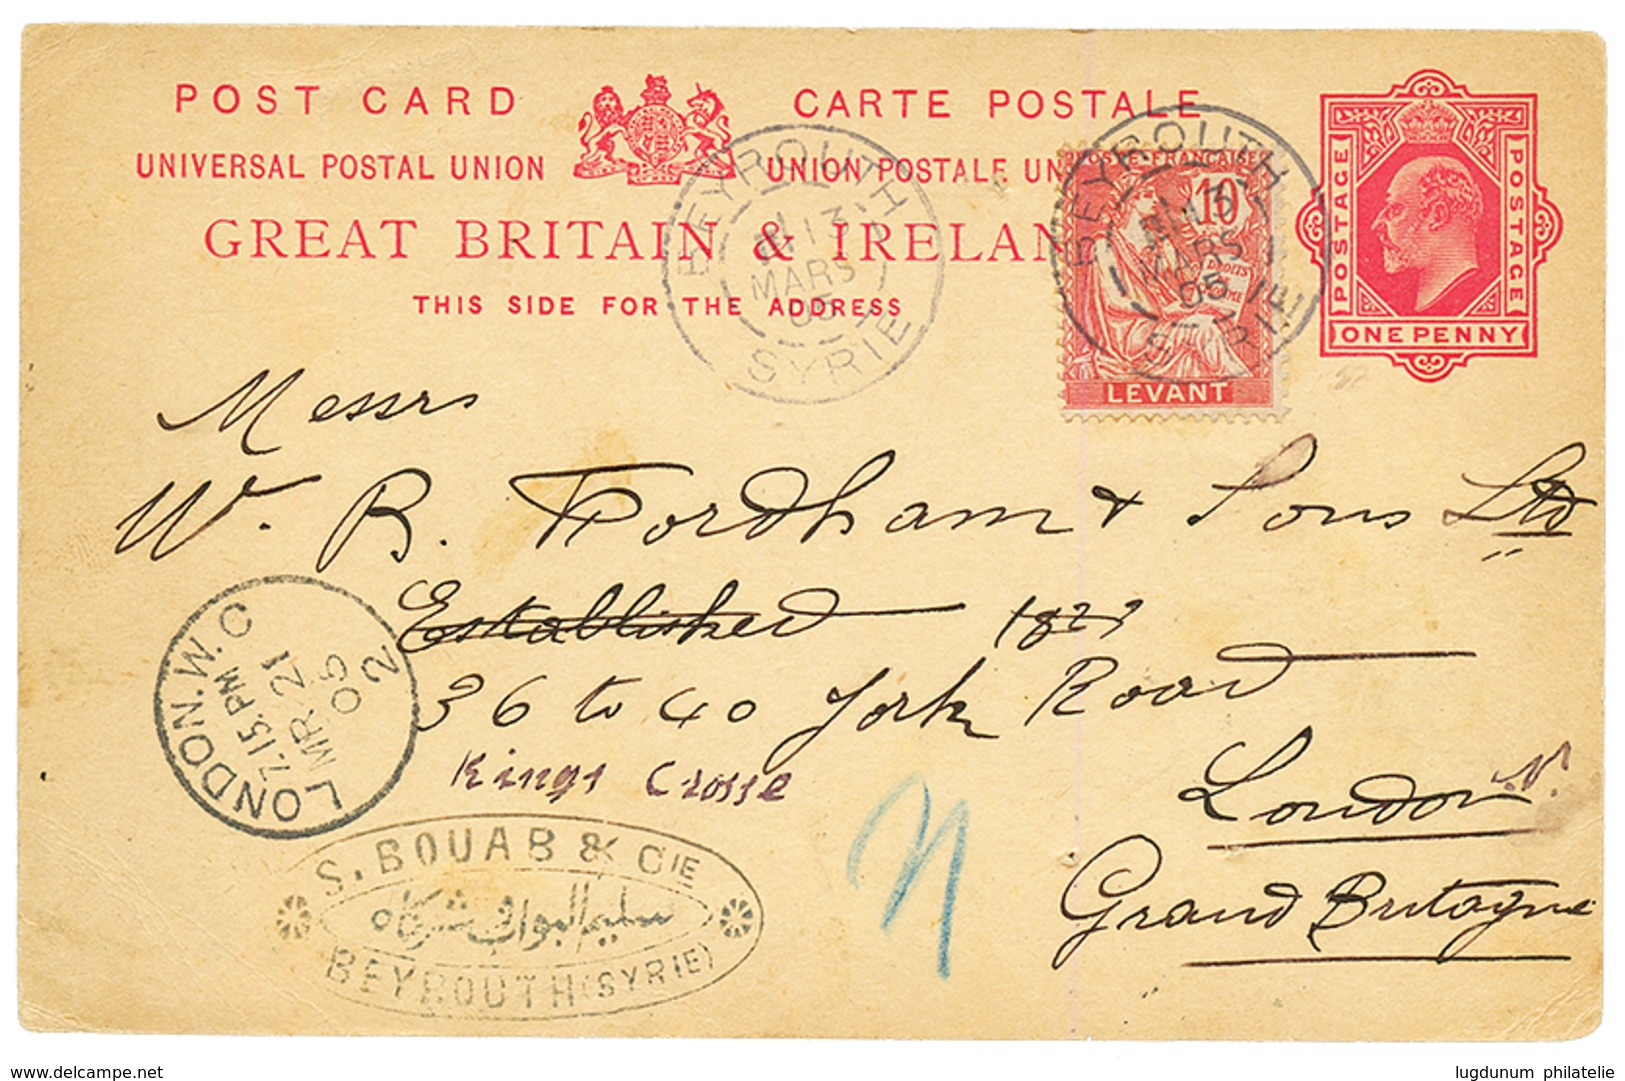 POST CARD
CARTE POSTALE
UNIVERSAL POSTAL UNION
UNION POSTALE UN
GREAT BRITAIN & IRELAN
THIS SIDE FOR THE ADDRESS
POSTAGE
POSTAGE
ONE PENNY
BEYROUTH
13
MARS
05
SYRIE
POSTE FRANÇAISE
10
LEVANT
BEYROUTH
13
MARS
05
SYRIE
Messrs
W. B. Fordham & Sons Ltd
Established
36 to 40 York Road
Kings Crosse
London N.
Grand Bretagne
LONDON. W. C
7.15 PM
MR 21
05
2
S. BOUAB & CIE
سليم البواب وشركاه
BEYROUTH (SYRIE)
delcampe.net
lugdunum philatelie